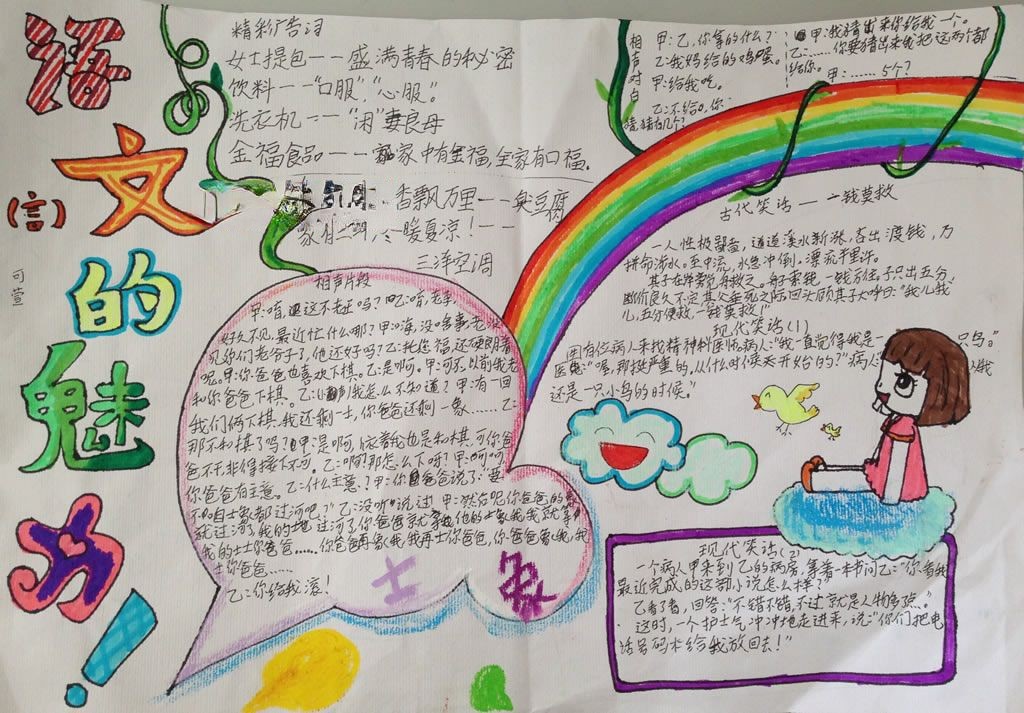 语
文
(言)
的
魅
力
!
可萱
精彩广告词
女士提包——盛满青春的秘密
饮料——"口服","心服"。
洗衣机——"闲"妻良母
金福食品——家中有金福,全家有口福。
香飘万里——臭豆腐
冬暖夏凉!——
三洋空调
相声对白
甲:乙,你拿的什么?
乙:我妈给的鸡蛋。
甲:给我吃。
乙:不给。你
猜猜有几个?
甲:我猜出来你给我一个。
乙:……你要猜出来我把这两个都
给你。
甲:……5个?
相声片段
甲:哟,这不老王吗?乙:哈,老李,
好久不见,最近忙什么哪?甲:嗨,没啥事,老没
见你们老爷子了,他还好吗?乙:托您福,还硬朗着
呢。甲:你爸爸也喜欢下棋。乙:是啊。甲:可不,以前我老
和你爸爸下棋。乙:我怎么不知道?甲:有一回
我们俩下棋,我还剩一士,你爸爸还剩一象……乙:
那不和棋了吗?甲:是啊,我也是和棋,可你爸
爸不干,非得接下不可。乙:啊?那怎么下呀?甲:呵呵,
你爸爸有主意。乙:什么主意?甲:你爸爸说了:"要
不咱士象都过河吧?"乙:没听说过!甲:然后呢,你爸爸的象
就过河,我的士也过河了,你爸爸就拿他的士象我,我就拿
我的士你爸爸……你爸爸再象我,我再士你爸爸,你爸爸象我,我
士你爸爸……
乙:你给我滚!
士
象
古代笑话——一钱莫救
一人性极鄙啬,道遇溪水新涨,吝出渡钱,乃
拼命涉水。至中流,水急冲倒,漂流半里许。
其子在岸旁觅舟救之。舟子索钱,一钱方往。子只出五分,
断价良久不定,其父垂死之际回头顾其子大呼曰:"我儿我
儿,五分便救,一钱莫救!"
现代笑话(1)
因有位病人来找精神科医师,病人:"我一直觉得我是一只鸟。"
医师:"喔,那挺严重的,从什么时候开始的?"病人
还是一只小鸟的时候。"
现代笑话(2)
一个病人甲来到乙的病房,拿着一本书问乙:"你看我
最近完成的这部小说怎么样?"
乙看了看,回答:"不错不错,不过就是人物多点。"
这时,一个护士气冲冲地走进来,说:"你们把电
话号码本给我放回去!"